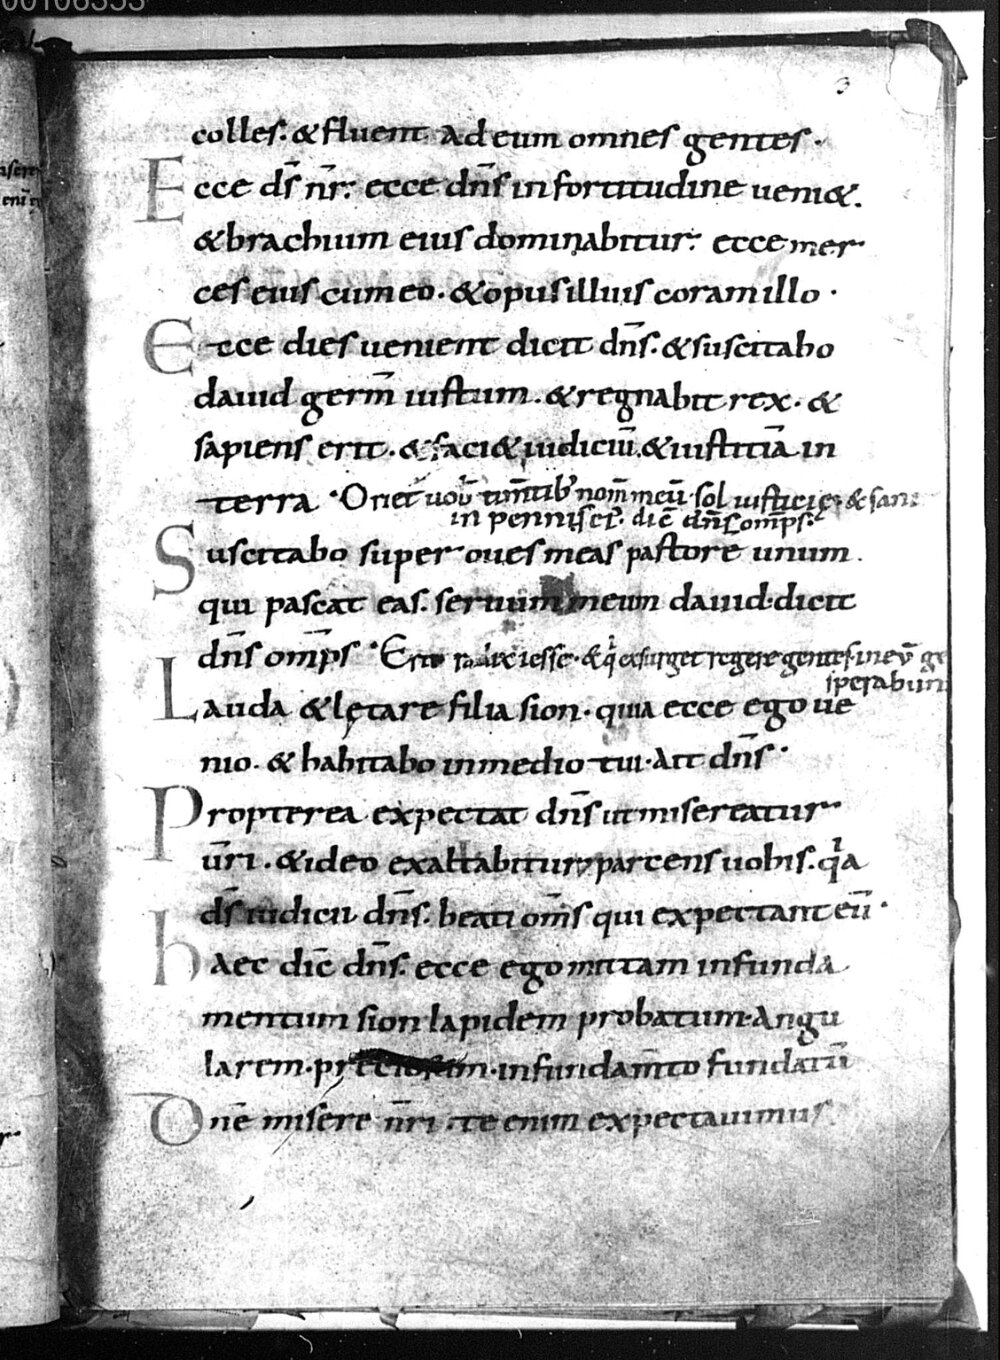 00106353
3
colles. & fluent ad eum omnes gentes.
Ecce d̄s n̄r. ecce dn̄s in fortitudine ueni&.
& brachium eius dominabitur. ecce mer
ces eius cum eo. & opus illius coram illo.
Ecce dies uenient dicit dn̄s. & suscitabo
dauid germ̄ iustum. & regnabit rex. &
sapiens erit. & faci& iudiciū. & iustitiā in
terra. Oriet uob̄ timentib; nom̄ meū. sol iusticię. & sani
in pennis ei. dic̄ dn̄s omp̄s.
Suscitabo super oues meas pastorē unum.
qui pascat eas. seruum meum dauid. dicit
dn̄s omp̄s. Erit radix iesse. & q̇ exsurget regere gentes. in eū ge
sperabun
Lauda & lętare filia sion. quia ecce ego ue
nio. & habitabo in medio tui. ait dn̄s.
Propterea expectat dn̄s ut misereatur
ūri. & ideo exaltabitur parcens uobis. qa
d̄s iudicii dn̄s. beati om̄s qui expectant eū.
haec dic̄ dn̄s. ecce ego mittam in funda
mentum sion lapidem probatum. angu
larem. preciosum. in fundam̄to fundatū
Dn̄e misere n̄ri. te enim expectauimus.